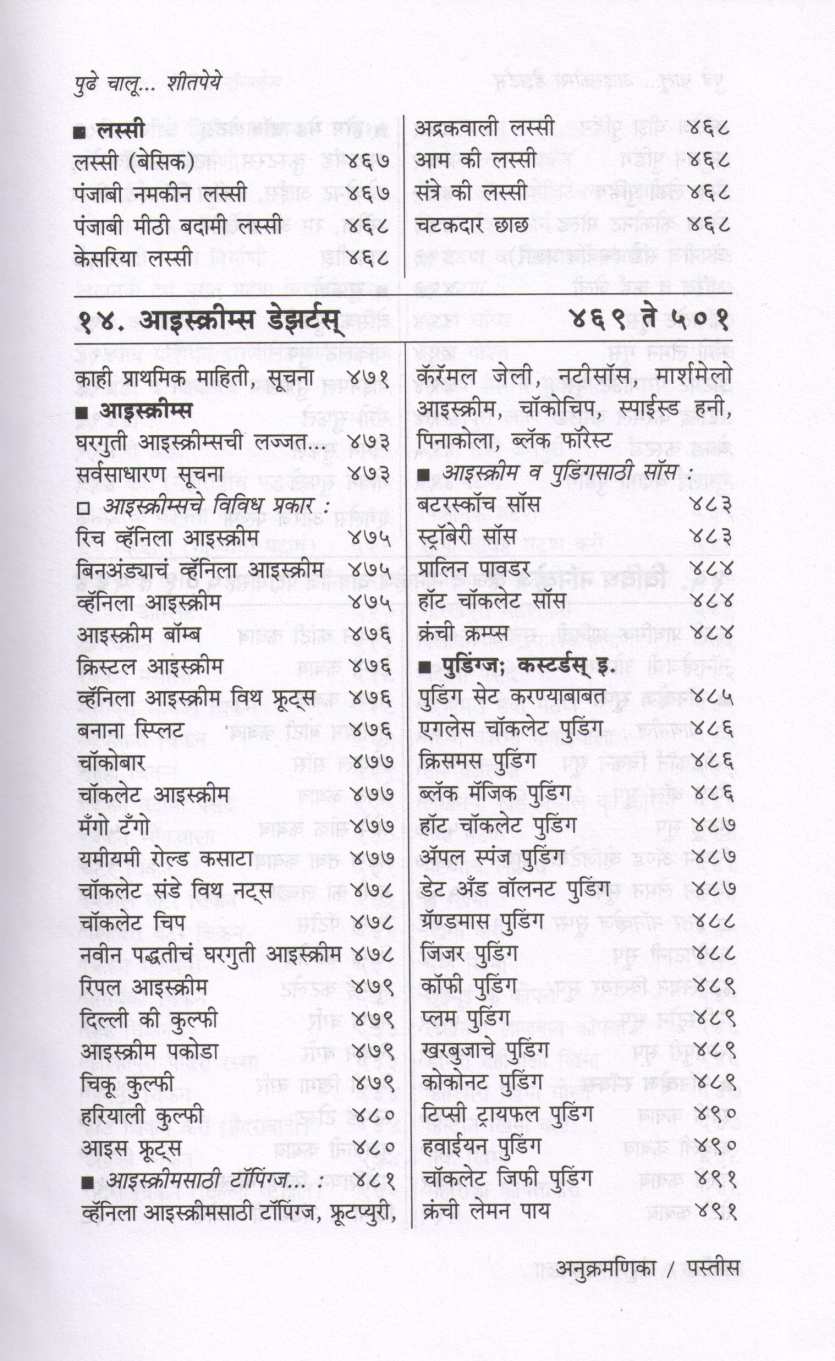 पुढे चालू... शीतपेये
■ लस्सी
लस्सी (बेसिक) ४६७
पंजाबी नमकीन लस्सी ४६७
पंजाबी मीठी बदामी लस्सी ४६८
केसरिया लस्सी ४६८
अद्रकवाली लस्सी ४६८
आम की लस्सी ४६८
संत्रे की लस्सी ४६८
चटकदार छाछ ४६८
१४. आइस्क्रीम्स डेझर्टस् ४६९ ते ५०१
काही प्राथमिक माहिती, सूचना ४७१
■ आइस्क्रीम्स
घरगुती आइस्क्रीम्सची लज्जत... ४७३
सर्वसाधारण सूचना ४७३
□ आइस्क्रीम्सचे विविध प्रकार :
रिच व्हॅनिला आइस्क्रीम ४७५
बिनअंड्याचं व्हॅनिला आइस्क्रीम ४७५
व्हॅनिला आइस्क्रीम ४७५
आइस्क्रीम बॉम्ब ४७६
क्रिस्टल आइस्क्रीम ४७६
व्हॅनिला आइस्क्रीम विथ फ्रूट्स ४७६
बनाना स्प्लिट ४७६
चॉकोबार ४७७
चॉकलेट आइस्क्रीम ४७७
मँगो टँगो ४७७
यमीयमी रोल्ड कसाटा ४७७
चॉकलेट संडे विथ नट्स ४७८
चॉकलेट चिप ४७८
नवीन पद्धतीचं घरगुती आइस्क्रीम ४७८
रिपल आइस्क्रीम ४७९
दिल्ली की कुल्फी ४७९
आइस्क्रीम पकोडा ४७९
चिकू कुल्फी ४७९
हरियाली कुल्फी ४८०
आइस फ्रूट्स ४८०
■ आइस्क्रीमसाठी टॉपिंग्ज... : ४८१
व्हॅनिला आइस्क्रीमसाठी टॉपिंग्ज, फ्रूटप्युरी,
कॅरॅमल जेली, नटीसॉस, मार्शमेलो
आइस्क्रीम, चॉकोचिप, स्पाईस्ड हनी,
पिनाकोला, ब्लॅक फॉरेस्ट
■ आइस्क्रीम व पुडिंगसाठी सॉस :
बटरस्कॉच सॉस ४८३
स्ट्रॉबेरी सॉस ४८३
प्रालिन पावडर ४८४
हॉट चॉकलेट सॉस ४८४
क्रंची क्रम्प्स ४८४
■ पुडिंग्ज; कस्टर्डस् इ.
पुडिंग सेट करण्याबाबत ४८५
एगलेस चॉकलेट पुडिंग ४८६
क्रिसमस पुडिंग ४८६
ब्लॅक मॅजिक पुडिंग ४८६
हॉट चॉकलेट पुडिंग ४८७
ॲपल स्पंज पुडिंग ४८७
डेट अँड वॉलनट पुडिंग ४८७
ग्रॅण्डमास पुडिंग ४८८
जिंजर पुडिंग ४८८
कॉफी पुडिंग ४८९
प्लम पुडिंग ४८९
खरबुजाचे पुडिंग ४८९
कोकोनट पुडिंग ४८९
टिप्सी ट्रायफल पुडिंग ४९०
हवाईयन पुडिंग ४९०
चॉकलेट जिफी पुडिंग ४९१
क्रंची लेमन पाय ४९१
अनुक्रमणिका / पस्तीस